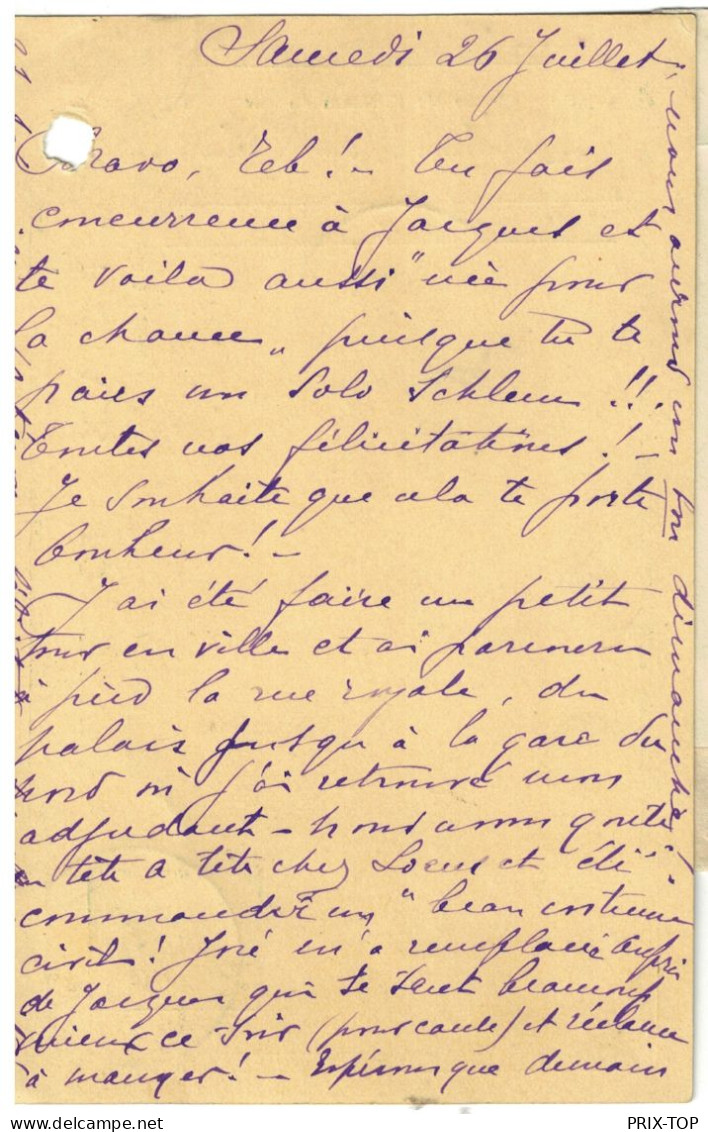 Samedi 26 Juillet,
Bravo, Zeb ! - Tu fais
concurrence à Jacques et
te voilà aussi "née pour
la chance", puisque tu te
paies un Solo Schlem !!!
Toutes nos félicitations ! -
Je souhaite que cela te porte
bonheur ! -
J'ai été faire un petit
tour en ville et ai parcouru
à pied la rue royale, du
palais jusqu'à la gare du
nord où j'ai retrouvé mon
adjudant - nous avons goûté
en tête à tête chez et été
commander un "beau costume
civil ! José m'a remplacée auprès
de Jacques qui se sent beaucoup
mieux ce soir (pour cause) et réclame
à manger ! - Espérons que demain
nous aurons un bon dimanche !
PRIX-TOP